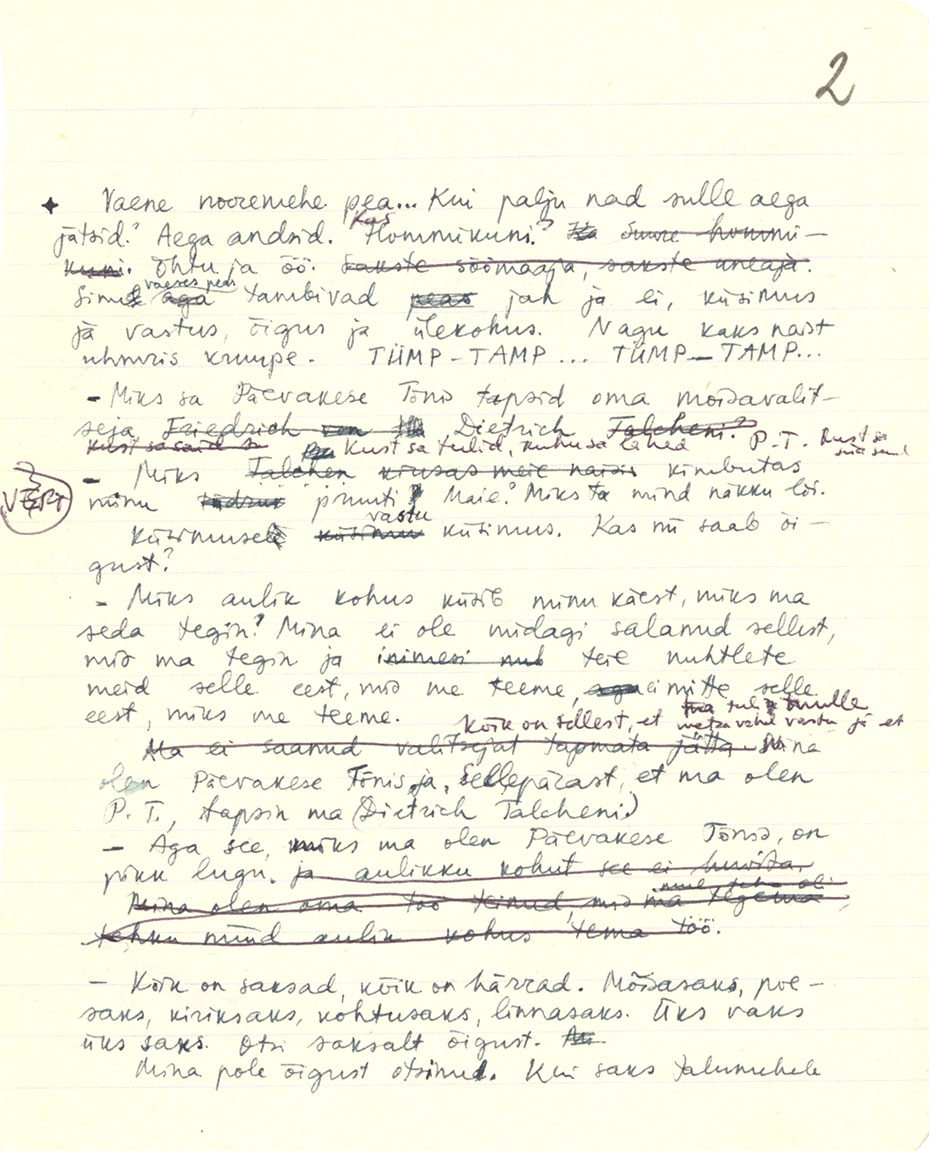 2
Vaene nooremehe pea... Kui palju nad sulle aega
jätsid? Aega andsid. Kas Hommikuni? Suure hommi-
kuni. Õhtu ja öö. Sakste söömaaja, sakste uneaja.
vaeses peas
Sinu aga tambivad peas jah ja ei, küsimus
ja vastus, õigus ja ülekohus. Nagu kaks naist
uhmris kruupe. TÜMP-TAMP... TÜMP-TAMP...
- Miks sa Päevakese Tõnis tapsid oma mõisavalit-
seja Friedrich von Dietrich Talcheni?
Kust sa said Kust sa tulid, kuhu sa lähed P.T. Kust sa
- Miks Talchen kiusas meie naisi kimbutas
VERT
minu pruuti Maie? Miks ta mind näkku lõi.
vastu
Küsimusele küsimus küsimus. Kas nii saab õi-
gust?
- Miks aulik kohus küsib minu käest, miks ma
seda tegin? Mina ei ole midagi salanud sellest,
mis ma tegin ja inimesi teie nuhtlete
meid selle eest, mis me teeme, aga ei mitte selle
eest, miks me teeme. Kõik on sellest, et ma tulin mulle
metsavahe vastu ja et
Ma ei saanud valitsejat tapmata jätta. Mina
olen Päevakese Tõnis, ja, Sellepärast, et ma olen
P.T., tapsin ma (Dietrich Talcheni)
- Aga see, miks ma olen Päevakese Tõnis, on
pikk lugu. ja aulikku kohut see ei huvita.
Mina olen oma töö teinud, mis ma tegema
tehku nüüd aulik kohus tema töö.
- Kõik on saksad, kõik on härrad. Mõisasaks, poe-
saks, kiriksaks, kohtusaks, linnasaks. Üks vaks
üks saks. Otsi saksalt õigust.
Mina pole õigust otsinud. Kui saks talumehele